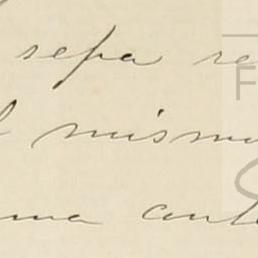 sepa re
l mismo
una cont